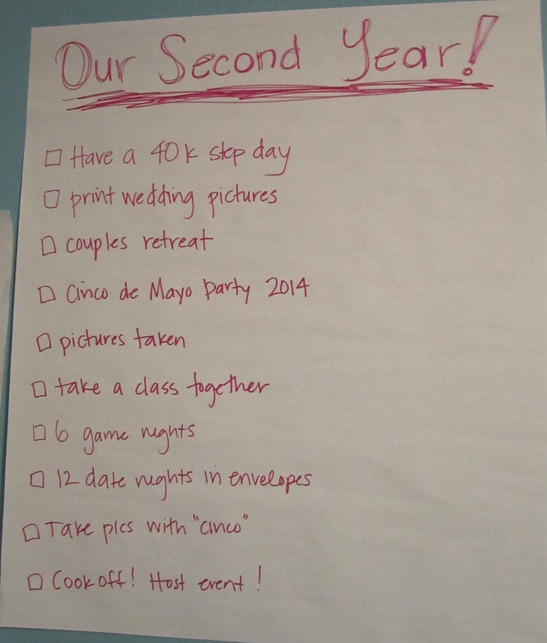 Our Second Year!
Have a 40k step day
print wedding pictures
couples retreat
Cinco de Mayo Party 2014
pictures taken
take a class together
6 game nights
12 date nights in envelopes
Take pics with "cinco"
Cook off! Host event!